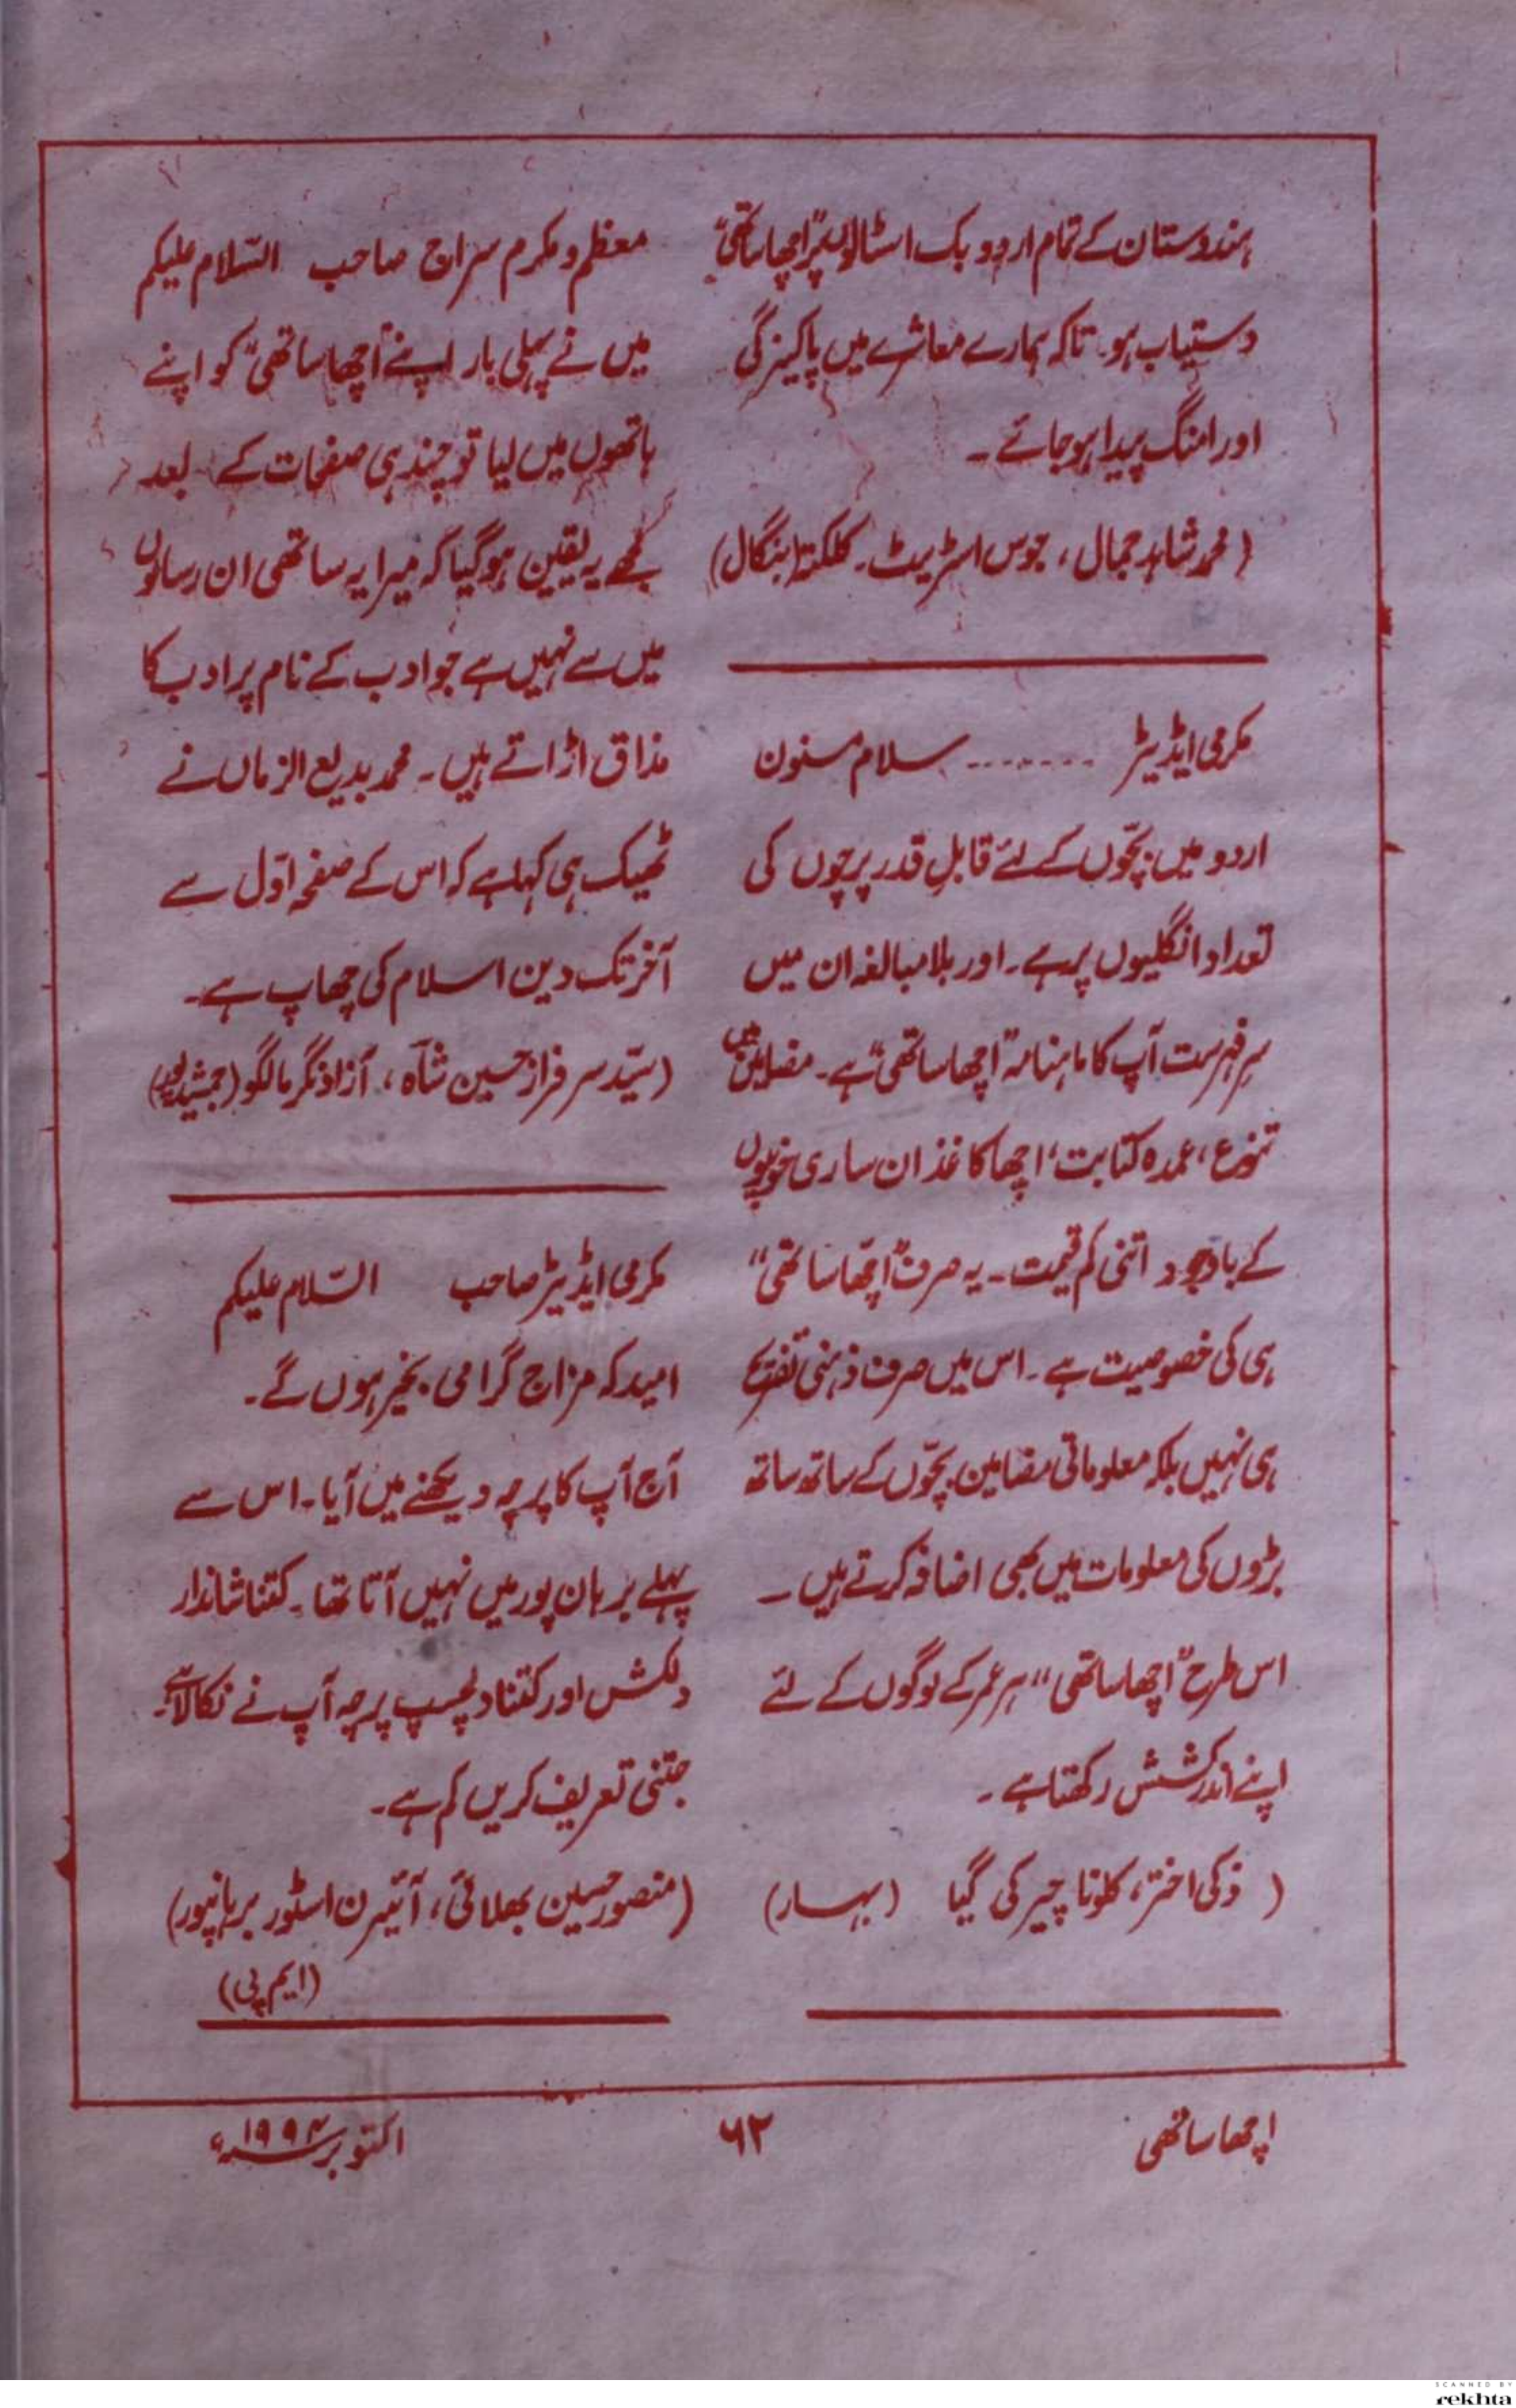 ہندوستان کے تمام اردو بک اسٹالوں پر "اچھا ساتھی"
دستیاب ہو۔ تاکہ ہمارے معاشرے میں پاکیزگی
اور امنگ پیدا ہو جائے۔
(محمد شاہد جمال، جوس اسٹریٹ۔ کلکتہ (بنگال)
مکرمی ایڈیٹر ........ سلام مسنون
اردو میں بچّوں کے لئے قابلِ قدر پرچوں کی
تعداد انگلیوں پر ہے۔ اور بلا مبالغہ ان میں
سرِ فہرست آپ کا ماہنامہ "اچھا ساتھی" ہے۔ مضامین میں
تنوع، عمدہ کتابت، اچھا کاغذ ان ساری خوبیوں
کے باوجود اتنی کم قیمت۔ یہ صرف "اچھّا ساتھی"
ہی کی خصوصیت ہے۔ اس میں صرف ذہنی تفریح
ہی نہیں بلکہ معلوماتی مضامین بچّوں کے ساتھ ساتھ
بڑوں کی معلومات میں بھی اضافہ کرتے ہیں۔
اس طرح "اچھا ساتھی" ہر عمر کے لوگوں کے لئے
اپنے اندر کشش رکھتا ہے۔
(ذکی اختر، کلونا چیر کی گیا (بہار)
معظم و مکرم سراج صاحب السّلام علیکم
میں نے پہلی بار اپنے "اچھا ساتھی" کو اپنے
ہاتھوں میں لیا تو چند ہی صفحات کے بعد
مجھے یہ یقین ہو گیا کہ میرا یہ ساتھی ان رسالوں
میں سے نہیں ہے جو ادب کے نام پر ادب کا
مذاق اڑاتے ہیں۔ محمد بدیع الزماں نے
ٹھیک ہی کہا ہے کہ اس کے صفحہ اوّل سے
آخر تک دین اسلام کی چھاپ ہے۔
(سیّد سرفراز حسین شآہ، آزاد نگر مالگو (جمشیدپور)
مکرمی ایڈیٹر صاحب السّلام علیکم
امید کہ مزاج گرامی بخیر ہوں گے۔
آج آپ کا پرچہ دیکھنے میں آیا۔ اس سے
پہلے برہان پور میں نہیں آتا تھا۔ کتنا شاندار
دلکش اور کتنا دلچسپ پرچہ آپ نے نکالا ہے۔
جتنی تعریف کریں کم ہے۔
(منصور حسین بھلائی، آئیرن اسٹور برہانپور)
(ایم پی)
اچھا ساتھی
۶۲
اکتوبر ۱۹۹۴ء
SCANNED BY
rekhta